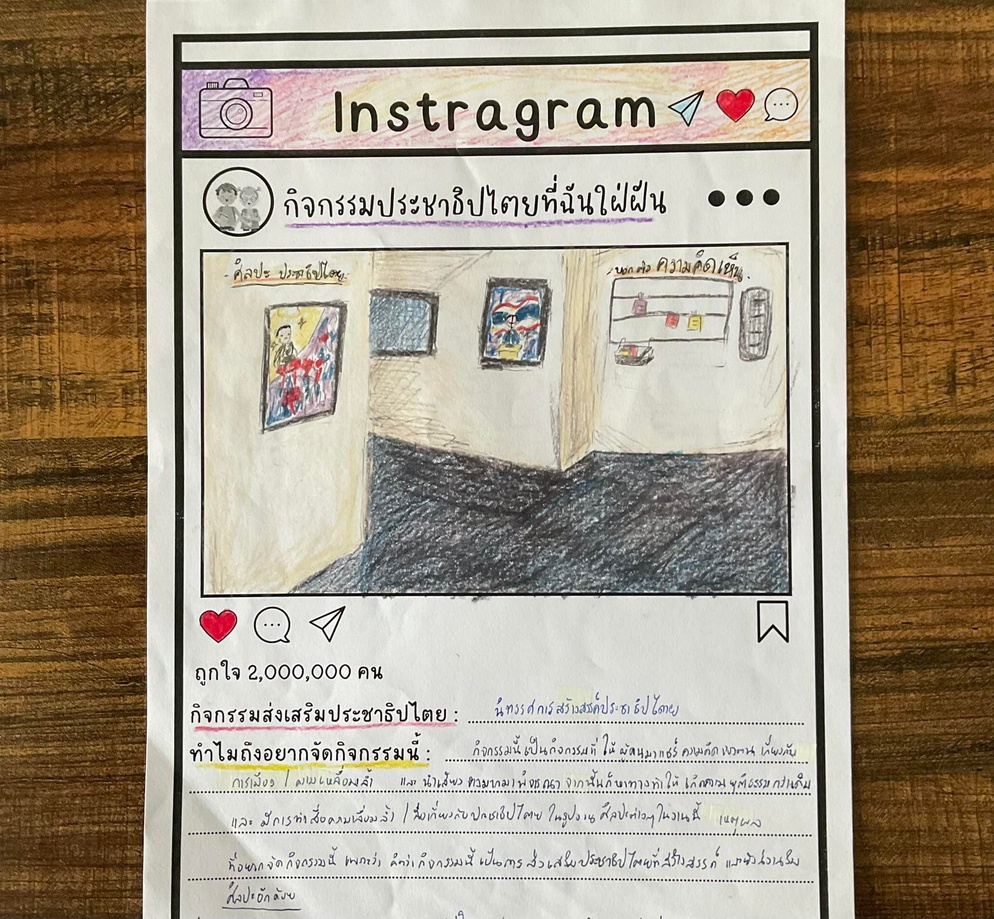 Instragram
กิจกรรมประชาธิปไตยที่ฉันใฝ่ฝัน
- ศิลปะ ประชาธิปไตย -
ความคิดเห็น
ถูกใจ 2,000,000 คน
กิจกรรมส่งเสริมประชาธิปไตย : นิทรรศการสร้างสรรค์ประชาธิปไตย
ทำไมถึงอยากจัดกิจกรรมนี้ : กิจกรรมนี้ เป็นกิจกรรมที่ ให้ ผู้คนมาแชร์ความคิด เกี่ยวกับ
การเมือง / ความเหลื่อมล้ำ และ นำเสียง จากนั้นก็หาทางทำให้ เกิดความยุติธรรม
และ มีการทำสื่อความเหลื่อมล้ำ / สื่อเกี่ยวกับประชาธิปไตย ในรูปแบบ ศิลปะต่างๆ ในงานนี้ เหตุผล
ที่อยากจัดกิจกรรมนี้ เพราะว่า คิดว่ากิจกรรมนี้ เป็นการ ส่งเสริมประชาธิปไตยที่สร้างสรรค์
ศิลปะอีกด้วย